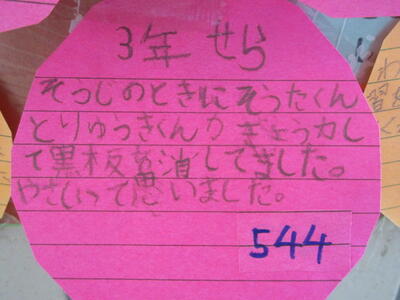 3年 せら
そうじのときにそうたくん
とりゅうきくんがきょう力し
て黒板を消してました。
やさしいって思いました。
544
わ
習を
く